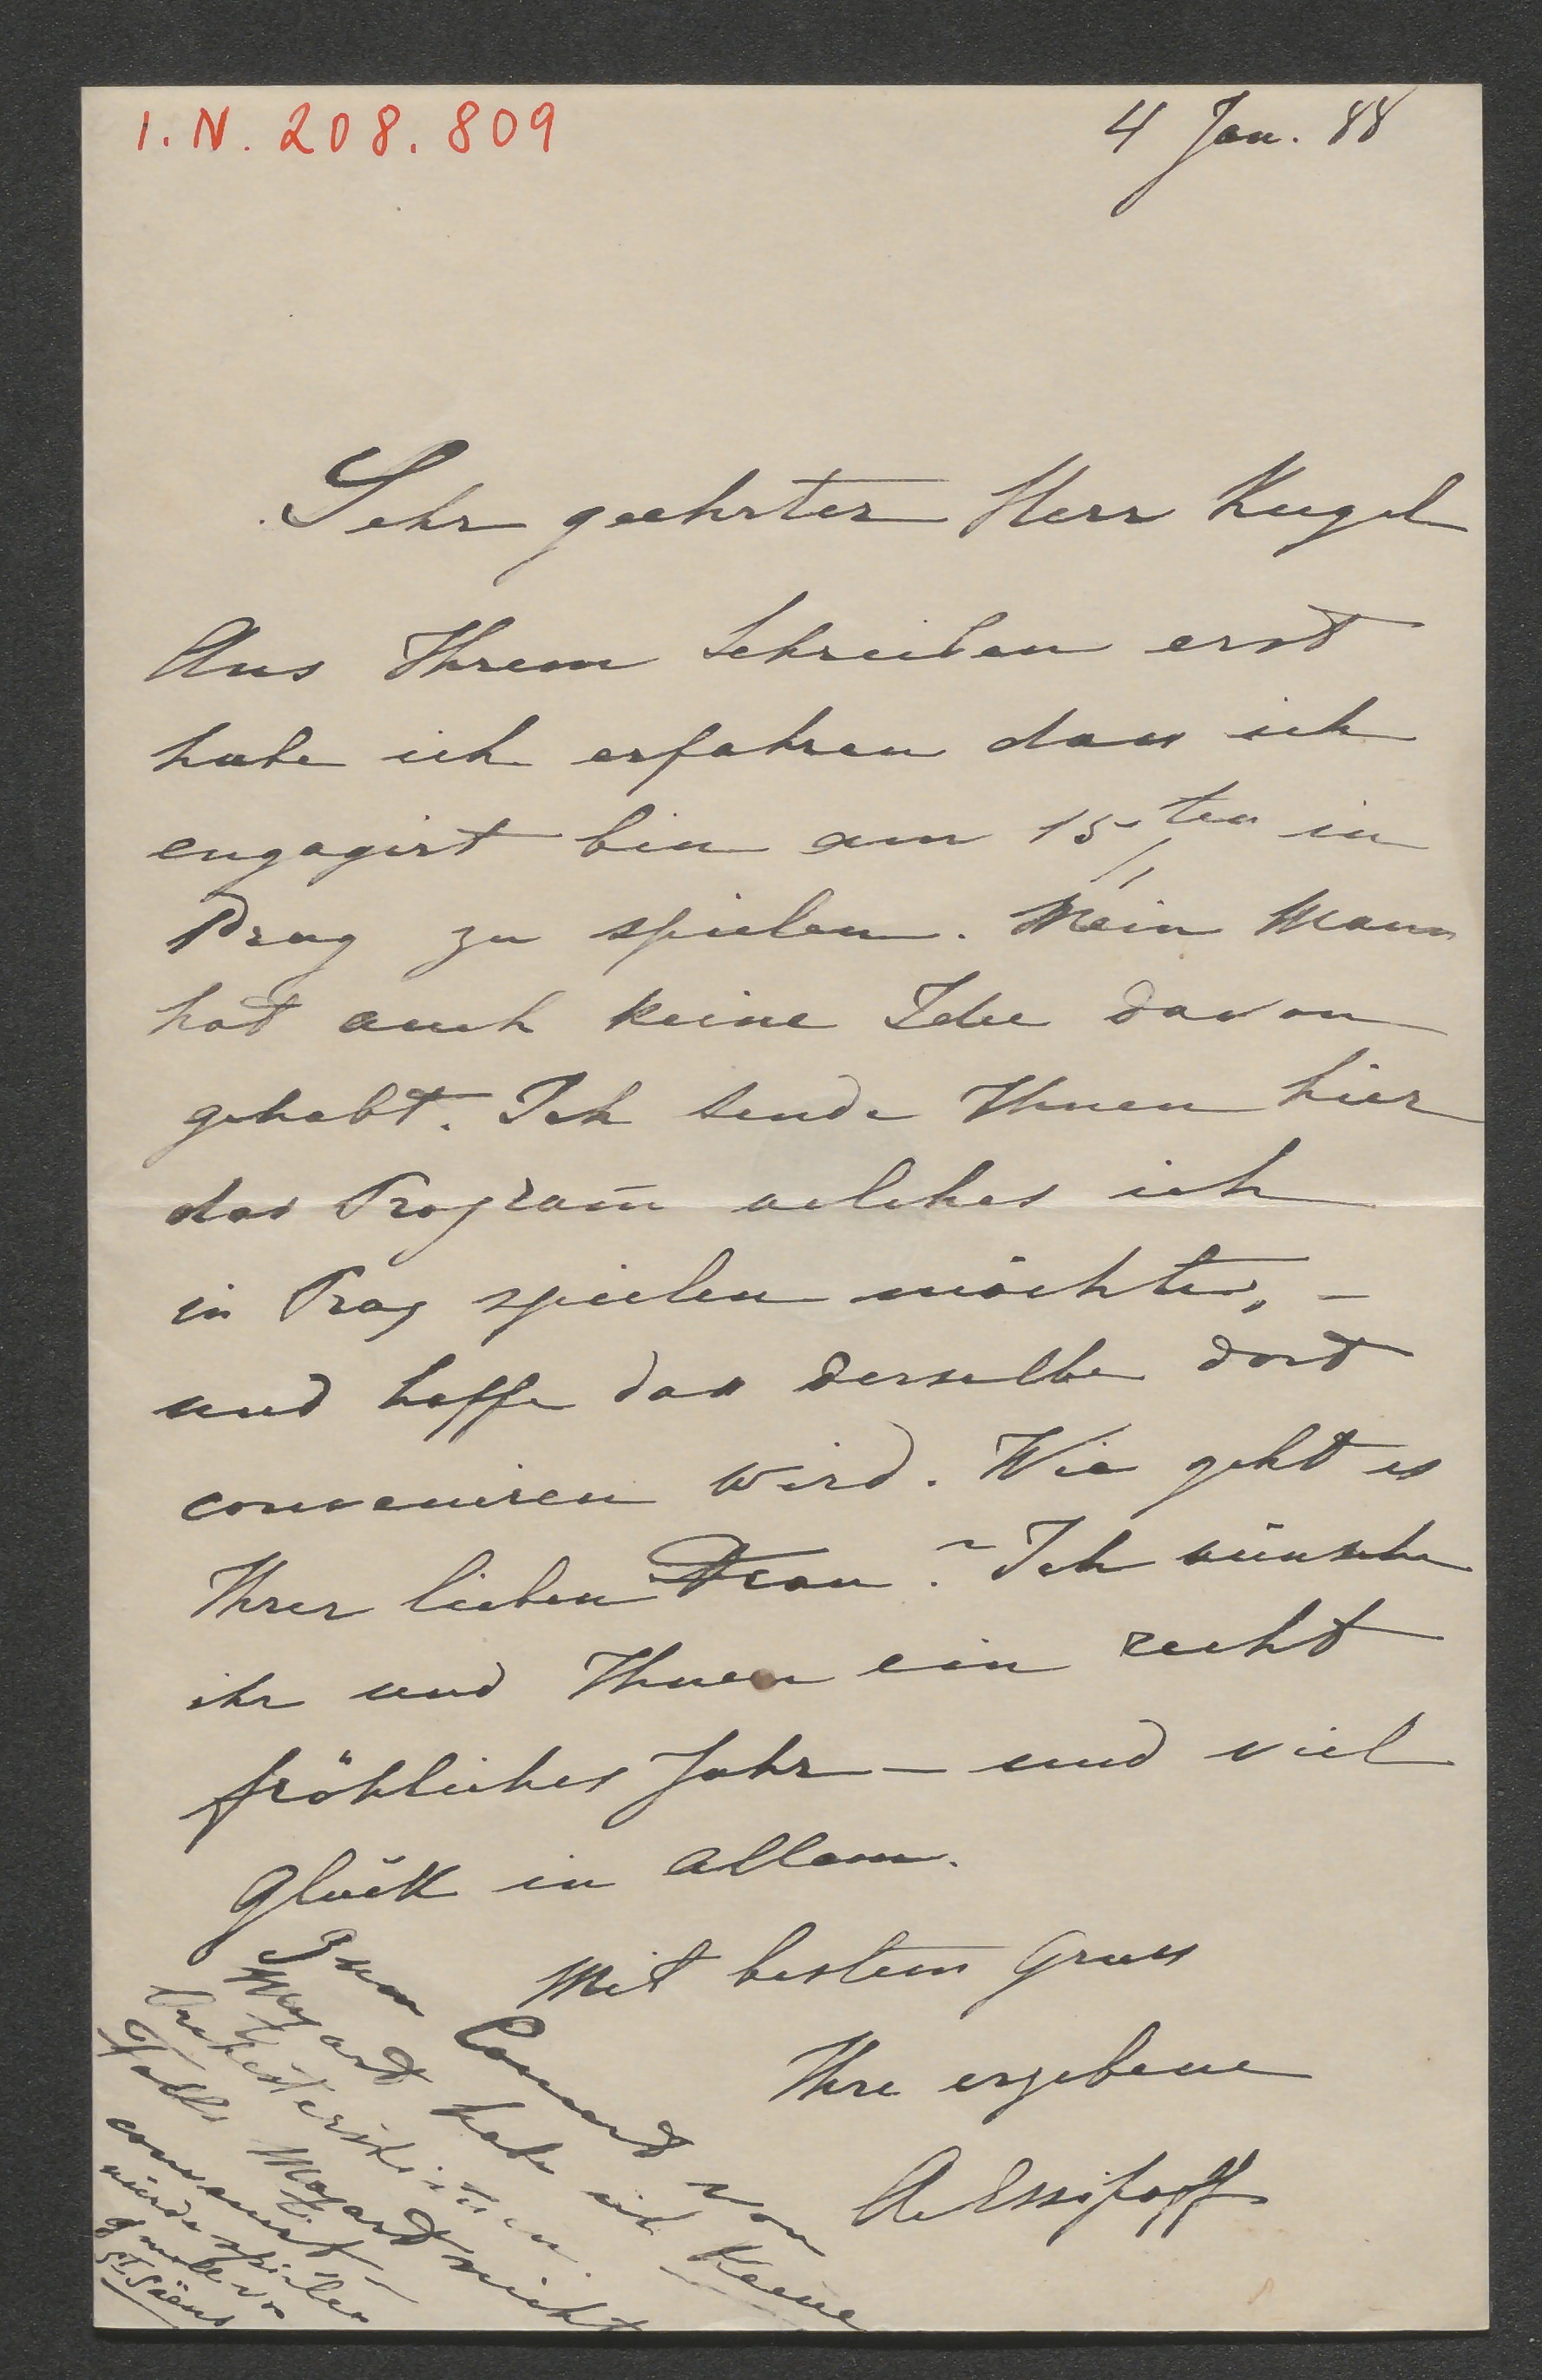 I.N. 208.809
4 Jan. 88
Sehr geehrter Herr Kugel
Aus Ihrem Schreiben erst
habe ich erfahren dass ich
engagirt bin am 15ten/1 in
Prag zu spielen. Mein Mann
hat auch keine Idee davon
gehabt. Ich sende Ihnen hier
das Program̅ welches ich
in Prag spielen möchte, –
und hoffe dass derselbe dort
conveniren wird. Wie geht es
Ihrer lieben Frau? Ich wünsche
ihr und Ihnen ein recht
fröhliches Jahr – und viel
Glück in allem.
Mit bestem Gruss
Ihre ergebene
A. Essipoff
Zum Concert von
Mozart habe ich keine
Orchesterstimmen
Falls Mozart nicht
convenirt –
würde spielen
G moll von
St. Säens